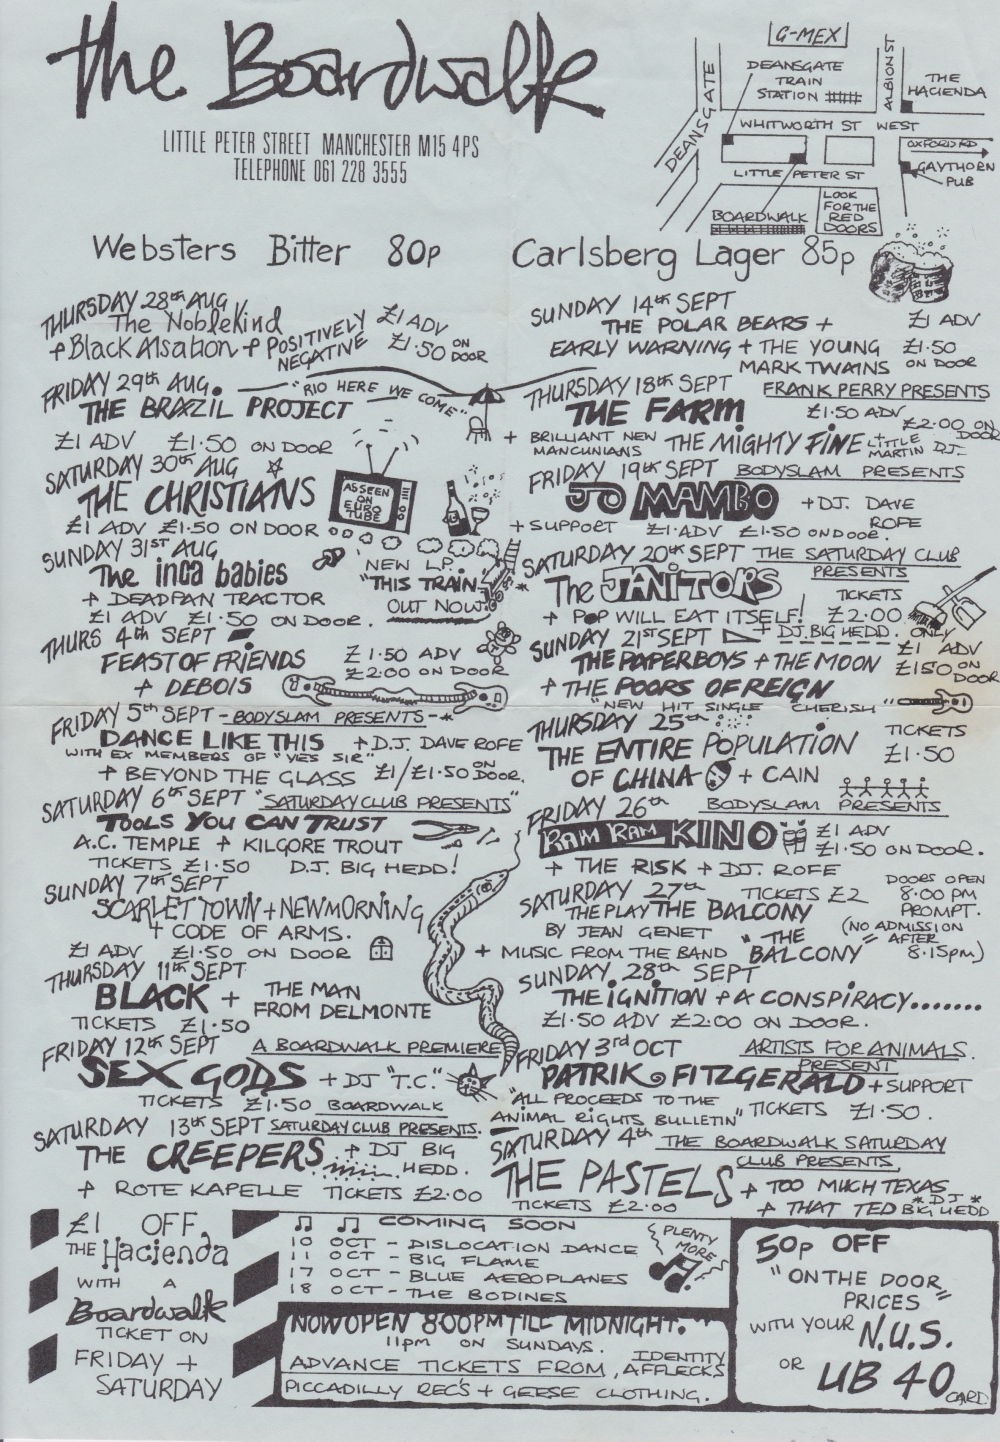 the Boardwalk
LITTLE PETER STREET MANCHESTER M15 4PS
TELEPHONE 061 228 3555
G-MEX
DEANSGATE
DEANSGATE TRAIN STATION
ALBION ST
THE HACIENDA
WHITWORTH ST WEST
OXFORD RD
GAYTHORN PUB
LITTLE PETER ST
BOARDWALK
LOOK FOR THE RED DOORS
Websters Bitter 80p Carlsberg Lager 85p
THURSDAY 28th AUG
The Noblekind
+ Black Alsation + POSITIVELY NEGATIVE
£1 ADV
£1.50 ON DOOR
FRIDAY 29th AUG.
"RIO HERE WE COME"
THE BRAZIL PROJECT
£1 ADV £1.50 ON DOOR
SATURDAY 30th AUG
THE CHRISTIANS
AS SEEN ON EURO TUBE
£1 ADV £1.50 ON DOOR
SUNDAY 31ST AUG
The inca babies
NEW L.P.
"THIS TRAIN"
OUT NOW.
+ DEADPAN TRACTOR
£1 ADV £1.50 ON DOOR.
THURS 4th SEPT
FEAST OF FRIENDS
£1.50 ADV
£2.00 ON DOOR
+ DEBOIS
FRIDAY 5th SEPT - BODYSLAM PRESENTS - *
DANCE LIKE THIS + D.J. DAVE ROFE
WITH EX MEMBERS OF "YES SIR"
+ BEYOND THE GLASS £1/£1.50 ON DOOR.
SATURDAY 6th SEPT "SATURDAY CLUB PRESENTS"
TOOLS YOU CAN TRUST
A.C. TEMPLE + KILGORE TROUT
TICKETS £1.50 D.J. BIG HEDD!
SUNDAY 7th SEPT
SCARLET TOWN + NEW MORNING
+ CODE OF ARMS.
£1 ADV £1.50 ON DOOR
THURSDAY 11th SEPT
BLACK + THE MAN FROM DELMONTE
TICKETS £1.50
FRIDAY 12th SEPT A BOARDWALK PREMIERE
SEX GODS + DJ "T.C."
TICKETS £1.50 BOARDWALK
SATURDAY 13th SEPT SATURDAY CLUB PRESENTS.
THE CREEPERS + DJ BIG HEDD.
+ ROTE KAPELLE TICKETS £2.00
SUNDAY 14th SEPT
THE POLAR BEARS + £1 ADV
EARLY WARNING + THE YOUNG £1.50
MARK TWAINS ON DOOR
THURSDAY 18th SEPT FRANK PERRY PRESENTS
THE FARM £1.50 ADV
£2.00 ON DOOR
+ BRILLIANT NEW MANCUNIANS THE MIGHTY FINE LITTLE MARTIN DJ.
FRIDAY 19th SEPT BODYSLAM PRESENTS
JO MAMBO + DJ. DAVE ROFE
+ SUPPORT £1.ADV £1.50 ON DOOR.
SATURDAY 20th SEPT THE SATURDAY CLUB PRESENTS
The JANITORS TICKETS
+ POP WILL EAT ITSELF! £2.00
+ DJ. BIG HEDD. ONLY
SUNDAY 21ST SEPT £1 ADV
THE PAPERBOYS + THE MOON £1.50 ON DOOR
+ THE POORS OF REIGN
"NEW HIT SINGLE CHERISH"
THURSDAY 25th TICKETS
THE ENTIRE POPULATION £1.50
OF CHINA + CAIN
FRIDAY 26th BODYSLAM PRESENTS
RAM RAM KINO £1 ADV
£1.50 ON DOOR.
+ THE RISK + DJ. ROFE
SATURDAY 27th TICKETS £2
DOORS OPEN 8.00 PM PROMPT.
THE PLAY THE BALCONY
(NO ADMISSION AFTER 8.15pm)
BY JEAN GENET
+ MUSIC FROM THE BAND "THE BALCONY"
SUNDAY 28th SEPT
THE IGNITION + A CONSPIRACY.......
£1.50 ADV £2.00 ON DOOR.
FRIDAY 3rd OCT ARTISTS FOR ANIMALS. PRESENT
PATRIK FITZGERALD + SUPPORT
"ALL PROCEEDS TO THE ANIMAL RIGHTS BULLETIN" TICKETS £1.50.
SATURDAY 4th THE BOARDWALK SATURDAY CLUB PRESENTS,
THE PASTELS + TOO MUCH TEXAS
TICKETS £2.00 + THAT TED *DJ* BIG HEDD
£1 OFF
THE Hacienda
WITH A
Boardwalk
TICKET ON
FRIDAY +
SATURDAY
COMING SOON
10 OCT - DISLOCATION DANCE
11 OCT - BIG FLAME
17 OCT - BLUE AEROPLANES
18 OCT - THE BODINES
PLENTY MORE
NOW OPEN 8.00PM TILL MIDNIGHT.
11pm ON SUNDAYS.
ADVANCE TICKETS FROM, IDENTITY AFFLECKS
PICCADILLY REC'S + GEESE CLOTHING.
50p OFF
"ON THE DOOR PRICES"
WITH YOUR N.U.S.
OR UB40 CARD